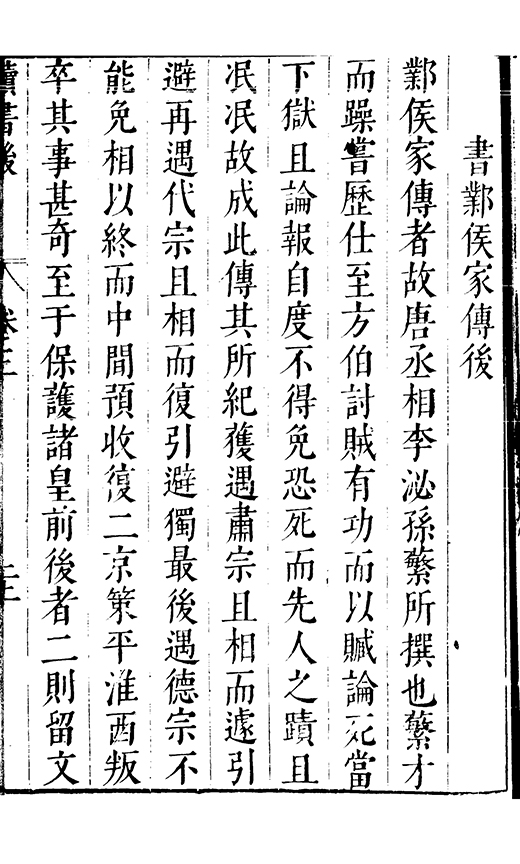 書鄴侯家傳後
鄴侯家傳者故唐丞相李泌孫蘩所撰也蘩才
而躁嘗歷仕至方伯討賊有功而以贓論死當
下獄且論報自度不得免恐死而先人之蹟且
泯泯故成此傳其所紀獲遇肅宗且相而遽引
避再遇代宗且相而復引避獨最後遇德宗不
能免相以終而中間預收復二京策平淮酉叛
卒其事甚奇至于保護諸皇前後者二則留文
讀書後
卷三